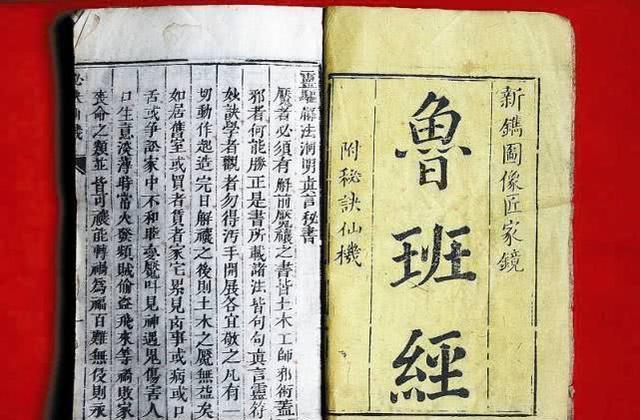 新鐫圖像匠家鏡
魯班經
附秘訣仙機
靈驅解法洞明真言秘書
魘者必須有解前魘禳之書皆土木工師邪術蓋
邪者何能勝正是書所載諸法皆句句真言靈符
妙訣學者觀者勿得污手開展各宜敬之凡有一
切動作起造完日解禳之後則土木之魘無益矣
如居舊室或買者賃者家宅累見凶事或病或口
舌或争訟家中不和睡夢魘叫見神遇鬼傷害人
口生意淡薄時常火發賊偷盜飛來等禍敗家
喪命之類並皆可禳能轉禍為福百難無侵則永
秘訣仙機